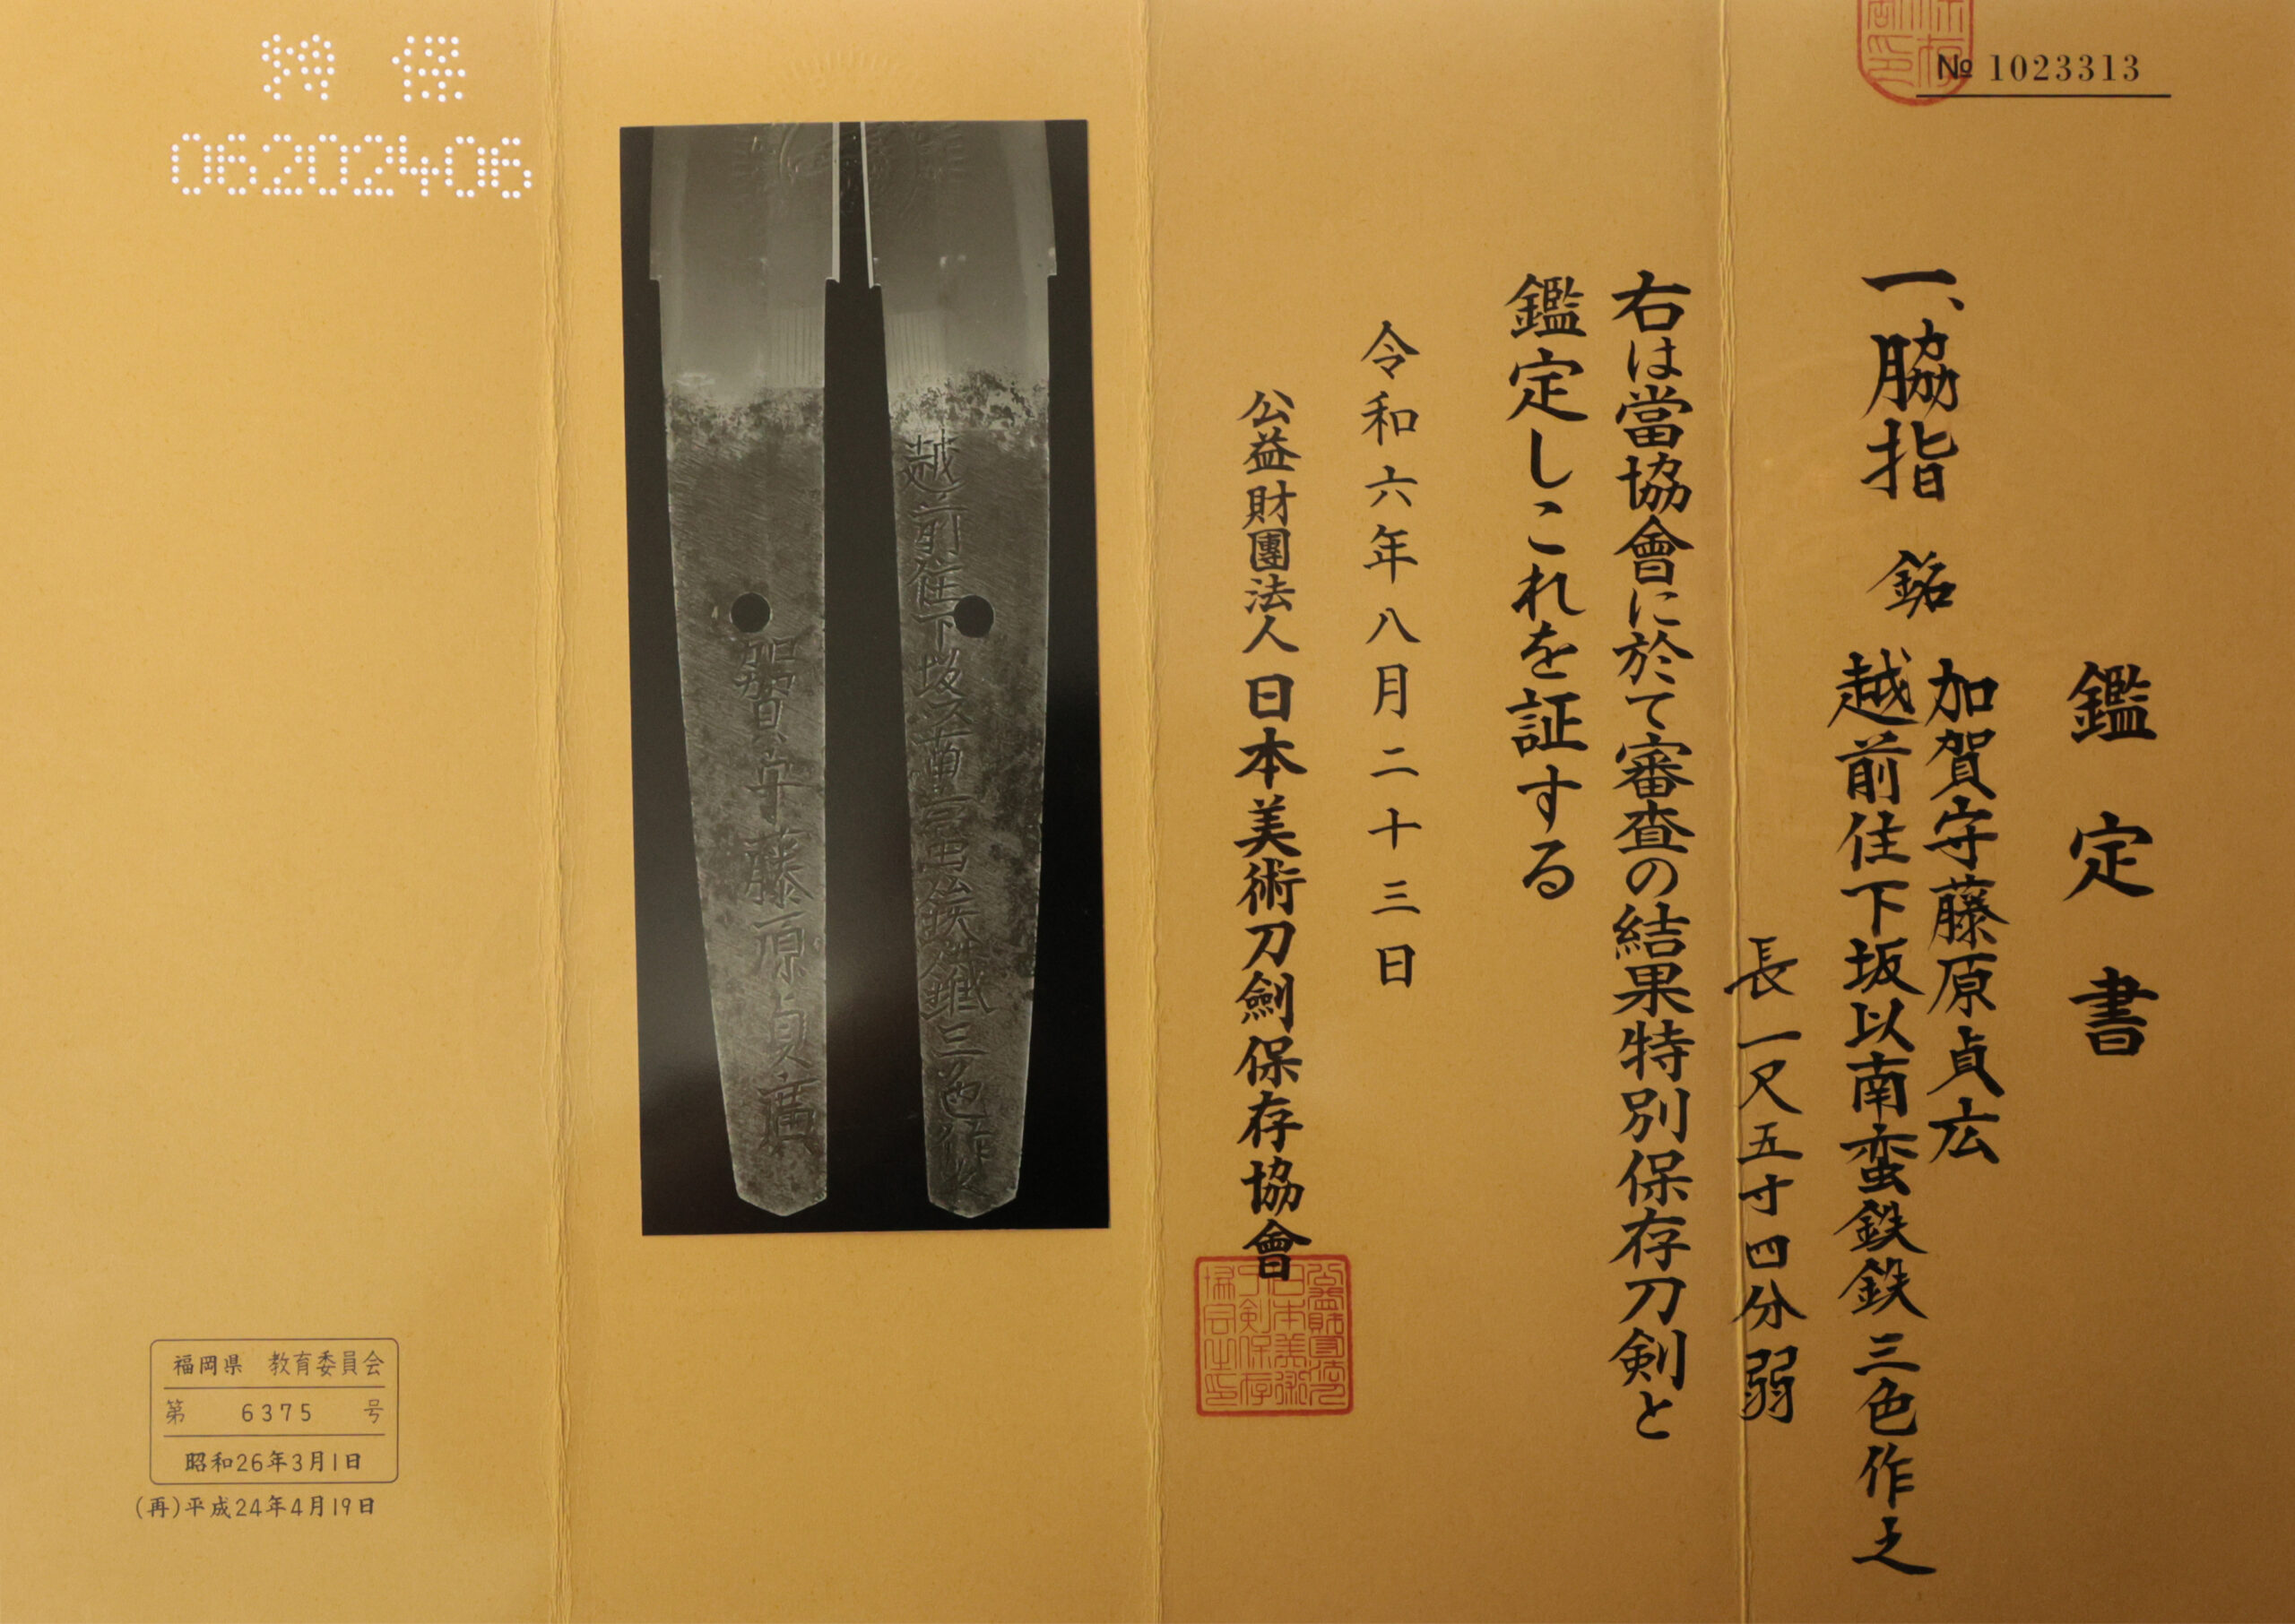 № 1023313
鑑定書
一、脇指 銘 加賀守藤原貞広
越前住下坂以南蛮鉄鉄三色作之
長一尺五寸四分弱
右は當協會に於て審査の結果特別保存刀剣と
鑑定しこれを証する
令和六年八月二十三日
公益財團法人 日本美術刀劍保存協會
越前住下坂
賀守藤原貞廣
特保
06202406
福岡県 教育委員会
第 6375 号
昭和26年3月1日
(再)平成24年4月19日